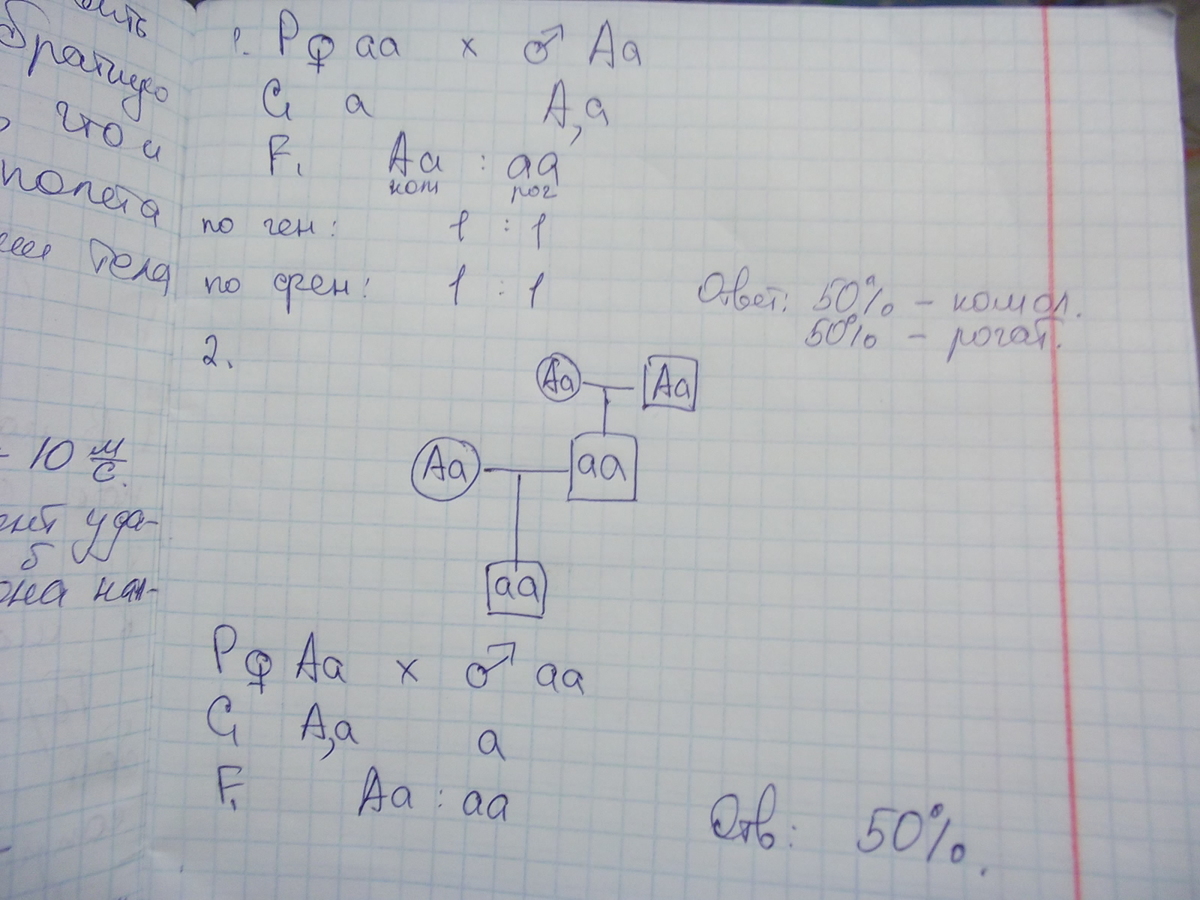 бить
братную
что и
полета
тела
10 м/с.
ент уда-
б
она нап-
1. P ♀ aa x ♂ Aa
G a A,a
F₁ Aa : aa
ком рог
по ген: 1 : 1
по фен: 1 : 1
Ответ: 50% – комол.
50% – рогат.
2.
Aa Aa
Aa aa
aa
P ♀ Aa x ♂ aa
G A,a a
F₁ Aa : aa
Отв: 50%.